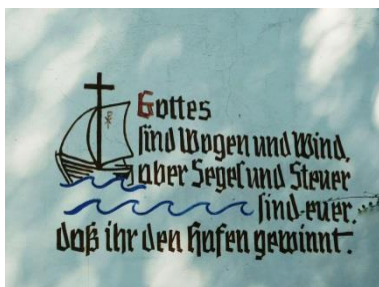 Gottes
sind Wogen und Wind,
aber Segel und Steuer
sind euer,
daß ihr den Hafen gewinnt.